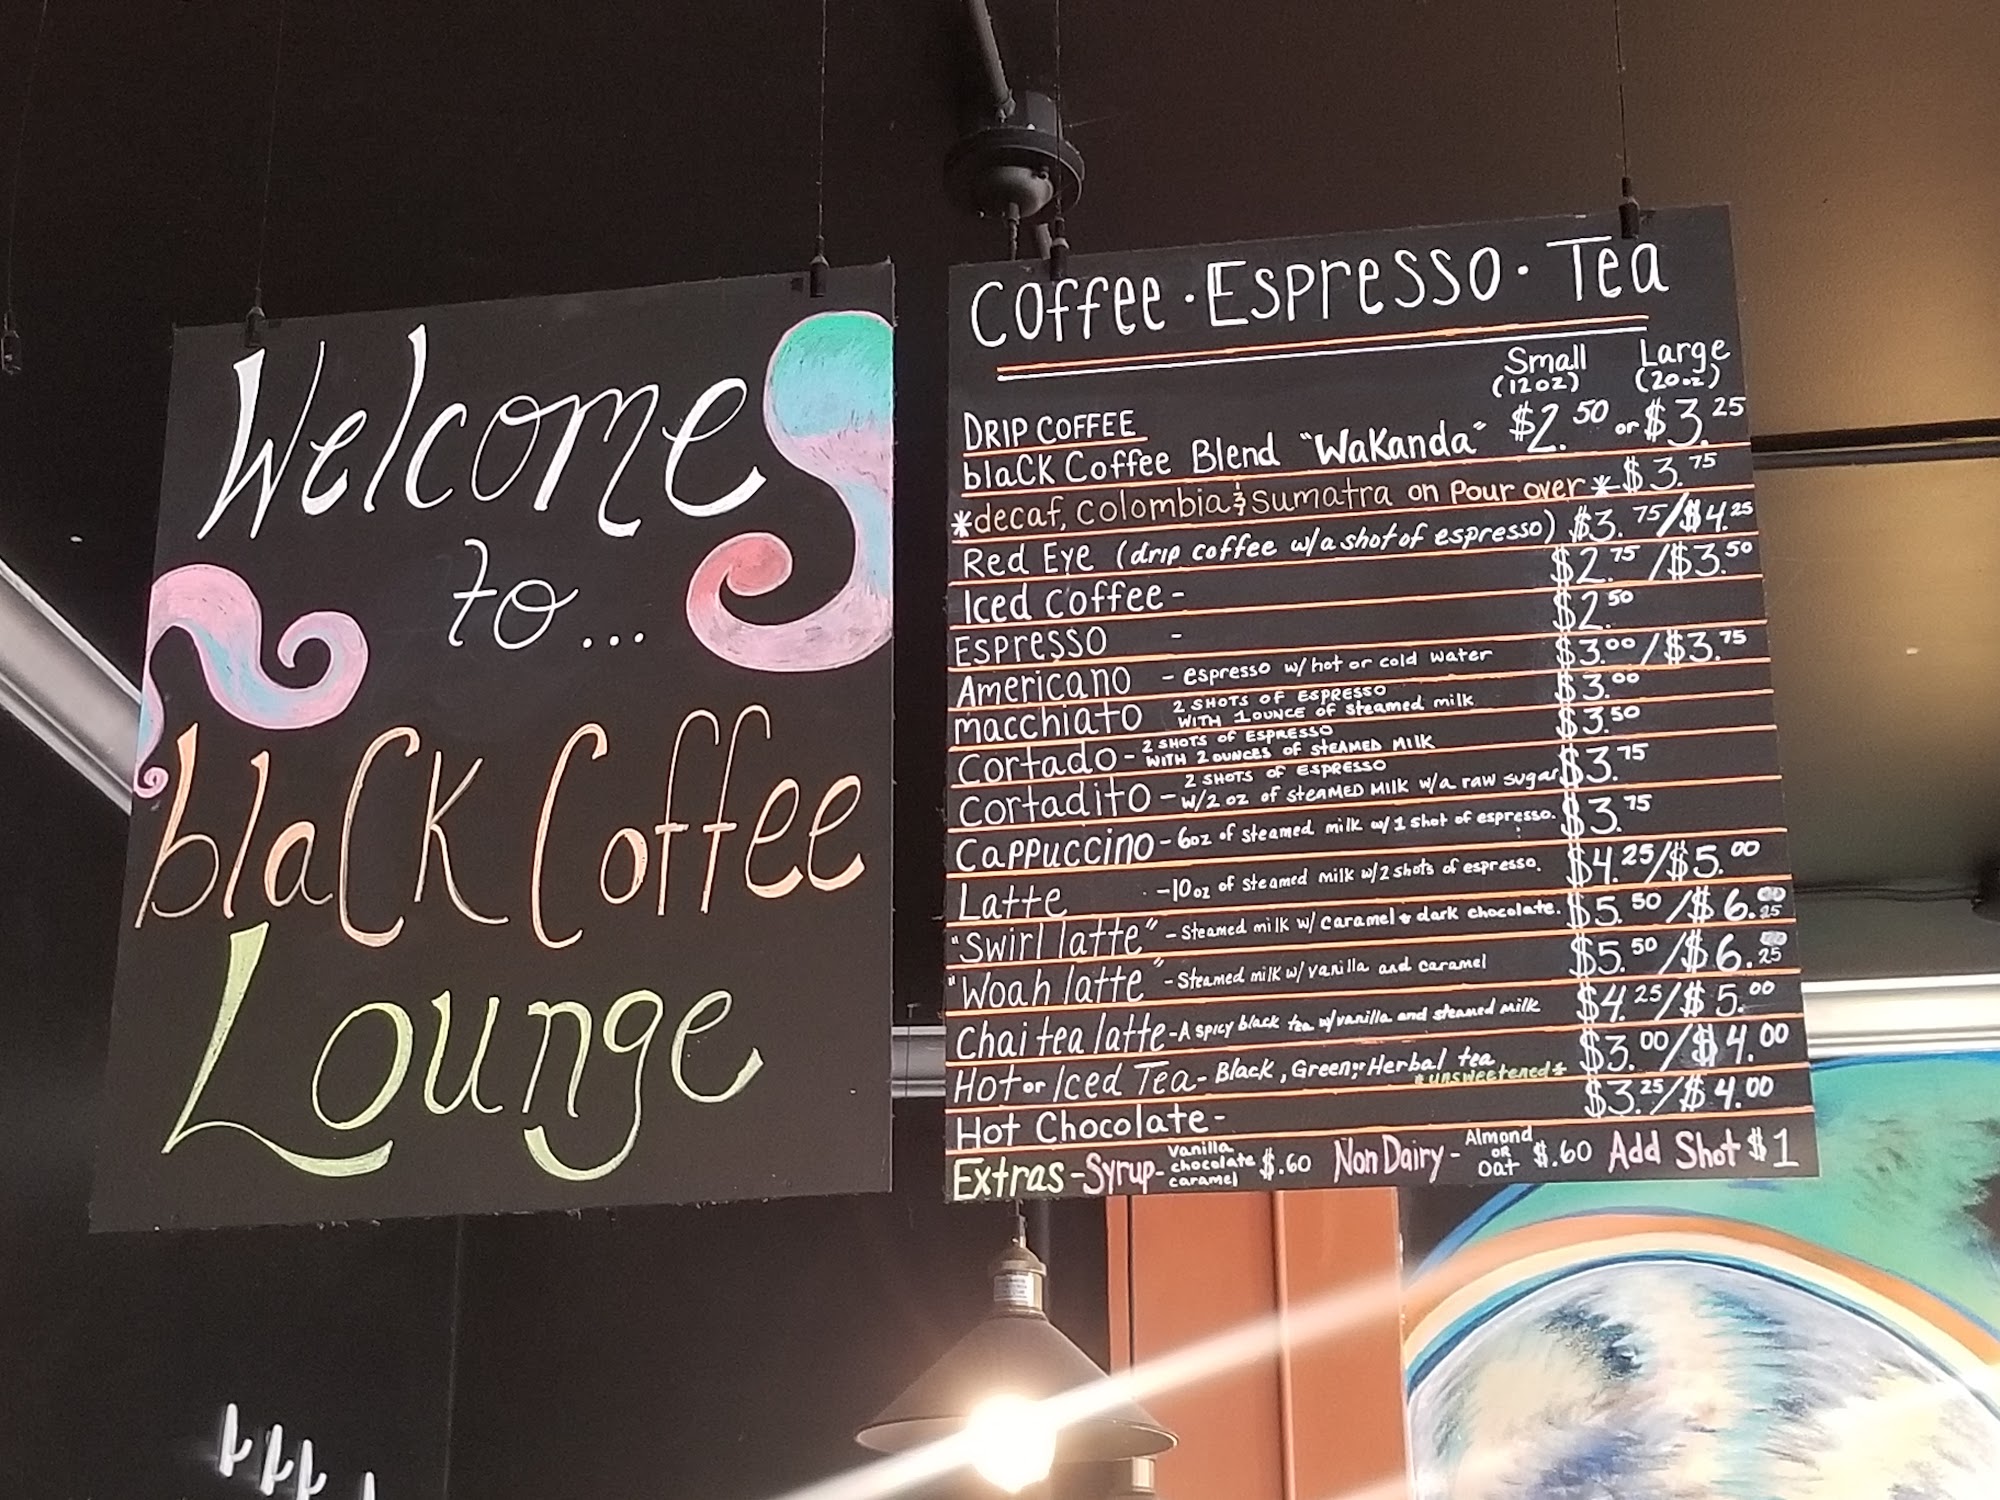 Welcome
to...
blaCK Coffee
Lounge
Coffee · Espresso · Tea
Small Large
(12oz) (20oz)
DRIP COFFEE
blaCK Coffee Blend "Wakanda" $2.50 or $3.25
*decaf, Colombia & Sumatra on Pour over* $3.75
Red Eye (drip coffee w/a shot of espresso) $3.75/$4.25
Iced coffee - $2.75/$3.50
Espresso - $2.50
Americano - espresso w/ hot or cold water $3.00/$3.75
macchiato 2 SHOTS OF ESPRESSO $3.00
WITH 1 OUNCE OF Steamed milk
Cortado - 2 SHOTS OF ESPRESSO $3.50
WITH 2 OUNCES OF STEAMED MILK
Cortadito - 2 SHOTS OF ESPRESSO $3.75
W/2 OZ OF STEAMED MILK w/a raw sugar
Cappuccino - 6oz of steamed milk w/ 1 shot of espresso. $3.75
Latte - 10oz of steamed milk w/2 shots of espresso. $4.25/$5.00
"Swirl latte" - Steamed milk w/ caramel & dark chocolate. $5.50/$6.25
"Woah latte" - Steamed milk w/ vanilla and caramel $5.50/$6.25
Chai tea latte - A spicy black tea w/vanilla and steamed milk $4.25/$5.00
Hot or Iced Tea - Black, Green or Herbal tea $3.00/$4.00
*unsweetened*
Hot Chocolate - $3.25/$4.00
Extras - Syrup - Vanilla chocolate caramel $.60 Non Dairy - Almond or Oat $.60 Add Shot $1